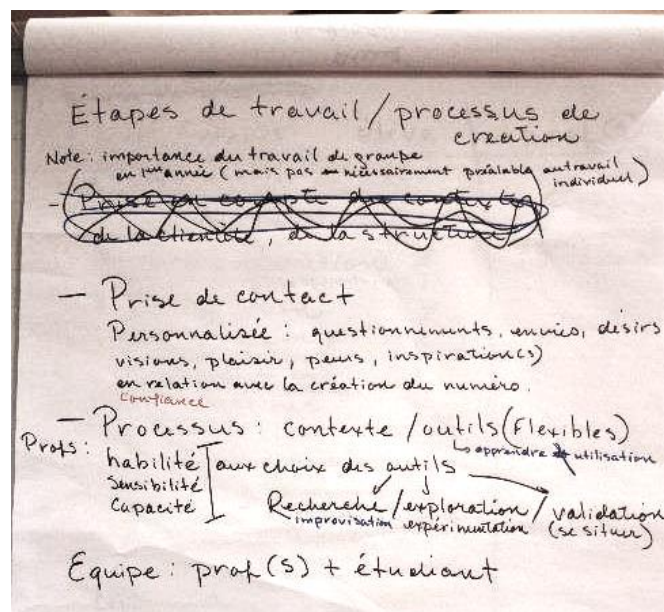 Étapes de travail / processus de
création
Note : importance du travail de groupe
en 1ère année (mais pas nécessairement préalable au travail
individuel)
- Prise en compte du contexte,
de la clientèle, de la structure
- Prise de contact
Personnalisée : questionnements, envies, désirs
visions, plaisir, peurs, inspiration(s)
en relation avec la création du numéro.
confiance
- Processus : contexte / outils (Flexibles)
apprendre utilisation
Profs :
habilité
Sensibilité
Capacité
aux choix des outils
Recherche / exploration / validation
improvisation expérimentation (se situer)
Equipe : prof(s) + étudiant